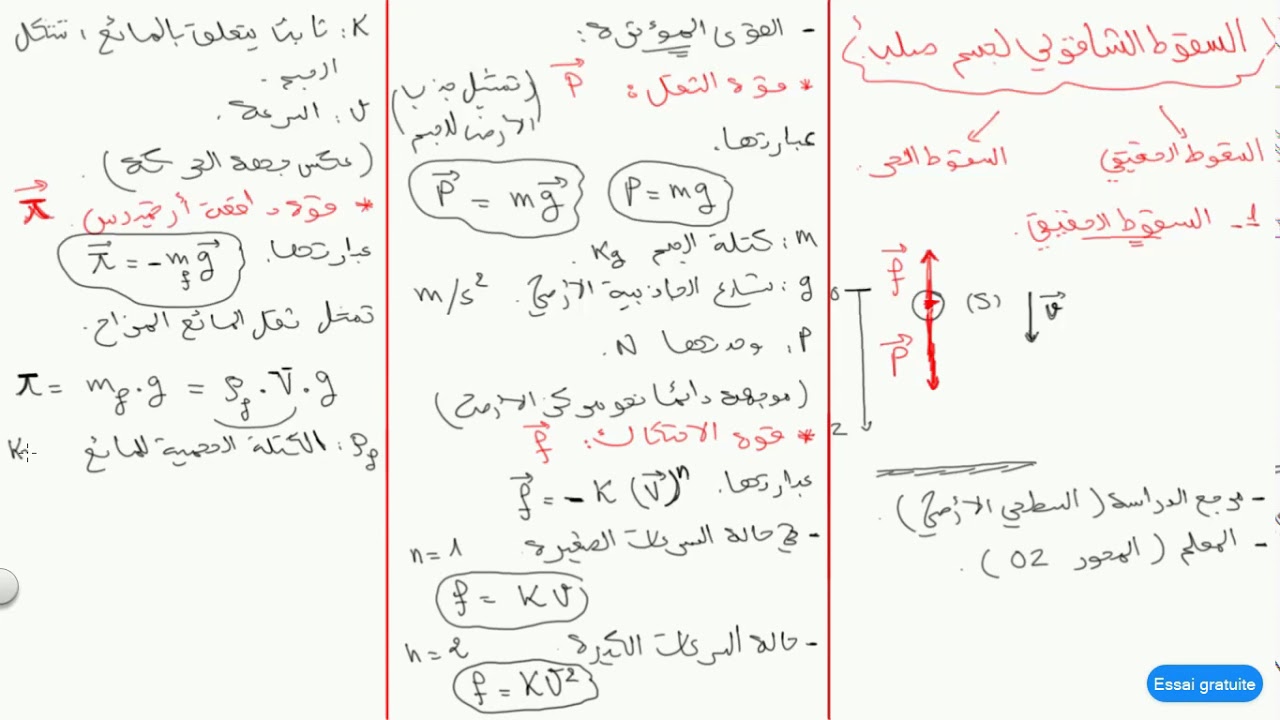 السقوط الشاقولي لجسم صلب:
السقوط الحقيقي
السقوط الحر
1- السقوط الحقيقي.
f
0
(S)
v
P
z
- مرجع الدراسة (السطحي الأرضي).
- المعلم (المحور OZ).
- القوى المؤثرة:
* قوة الثقل: P (تمثل جذب
الأرض للجسم)
عبارتها.
P = mg
P = mg
m: كتلة الجسم Kg
g: تسارع الجاذبية الأرضية. m/s²
P: وحدتها N.
(موجهة دائما نحو مركز الأرض)
* قوة الاحتكاك: f
عبارتها. f = - K (v)ⁿ
- في حالة السرعات الصغيرة n = 1
f = K v
- حالة السرعات الكبيرة n = 2
f = K v²
K: ثابت يتعلق بالمائع، شكل
الجسم.
v: السرعة.
(عكس جهة الحركة).
* قوة دافعة أرخميدس. π
عبارتها. π = - m_f g
تمثل ثقل المائع المزاح.
π = m_f . g = ρ_f . V . g
ρ_f: الكتلة الحجمية للمائع K
Essai gratuite